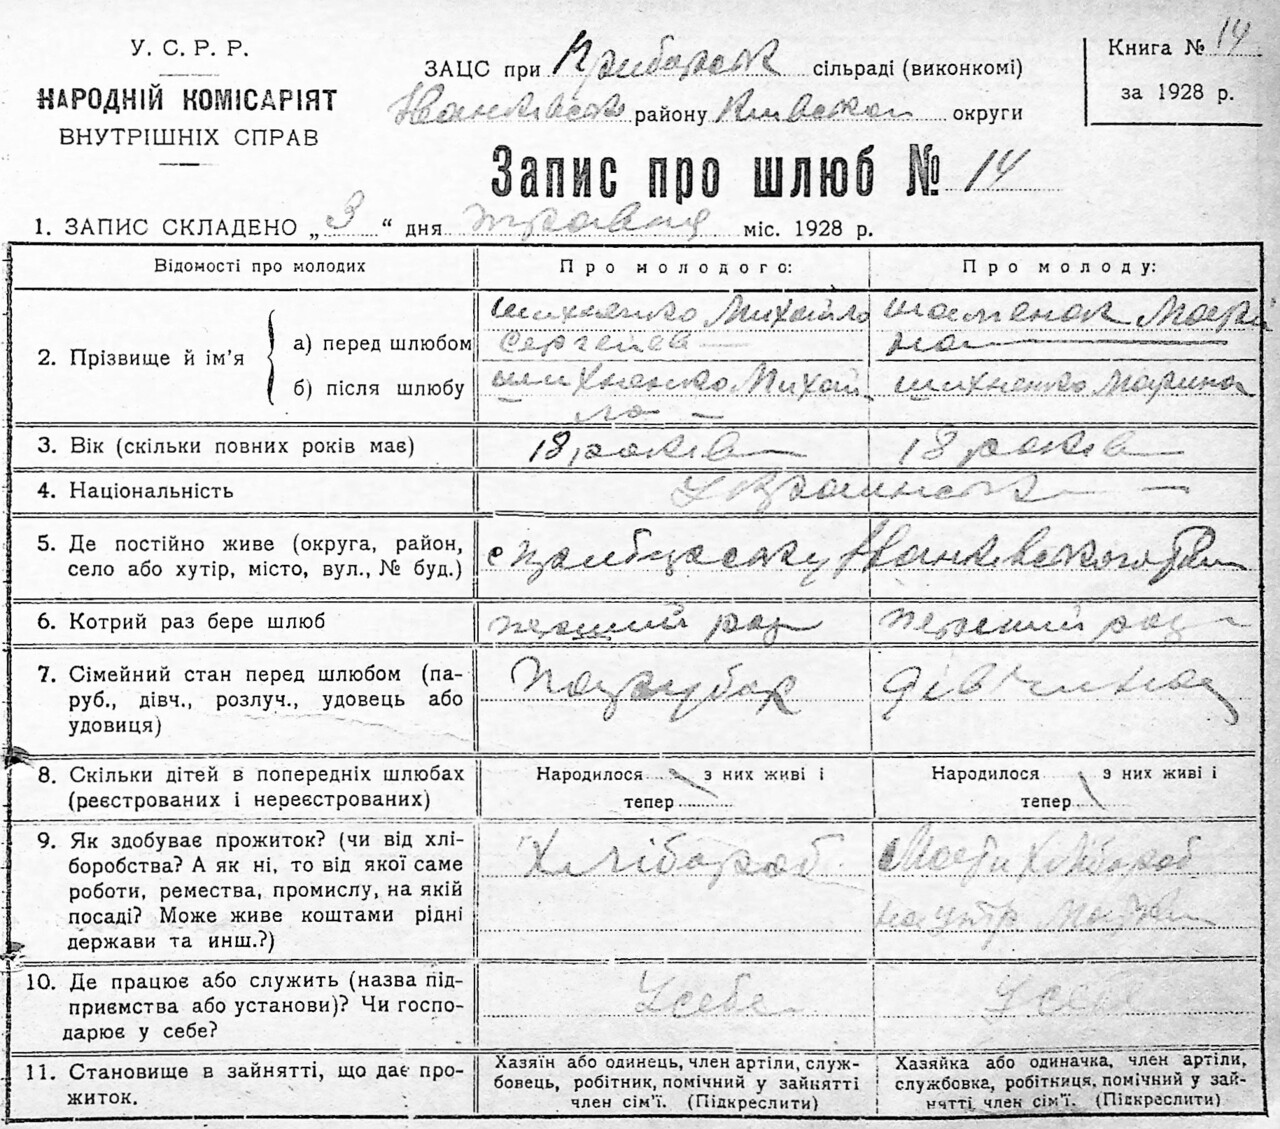 У. С. Р. Р.
НАРОДНІЙ КОМІСАРІЯТ
ВНУТРІШНІХ СПРАВ
ЗАЦС при Приборськ сільраді (виконкомі)
Іванківськ району Київськой округи
Книга № 14
за 1928 р.
Запис про шлюб № 14
1. ЗАПИС СКЛАДЕНО „3“ дня травня міс. 1928 р.
Відомості про молодих
Про молодого:
Про молоду:
2. Прізвище й ім’я
а) перед шлюбом
б) після шлюбу
Шихненко Михайло
Сергеїев
Шаменок Мари
на
Шихненко Михай
ло
Шихненко Марина
3. Вік (скільки повних років має)
18 років
18 років
4. Національність
Українськ
5. Де постійно живе (округа, район,
село або хутір, місто, вул., № буд.)
с Іванківського Рай
6. Котрий раз бере шлюб
перший раз
перший раз
7. Сімейний стан перед шлюбом (па-
руб., дівч., розлуч., удовець або
удовиця)
Парубок
Дівчина
8. Скільки дітей в попередніх шлюбах
(реєстрованих і нереєстрованих)
Народилося з них живі і
тепер
Народилося з них живі і
тепер
9. Як здобуває прожиток? (чи від хлі-
боробства? А як ні, то від якої саме
роботи, ремества, промислу, на якій
посаді? Може живе коштами рідні
держави та инш.?)
Хлібороб
Мати Хлібороб
на утр Матки
10. Де працює або служить (назва під-
приємства або установи)? Чи госпо-
дарює у себе?
У себе
У себе
11. Становище в зайнятті, що дає про-
житок.
Хазяїн або одинець, член артіли, служ-
бовець, робітник, помічний у зайнятті
член сім’ї. (Підкреслити)
Хазяйка або одиначка, член артіли,
службовка, робітниця, помічний у зай-
нятті член сім’ї. (Підкреслити)